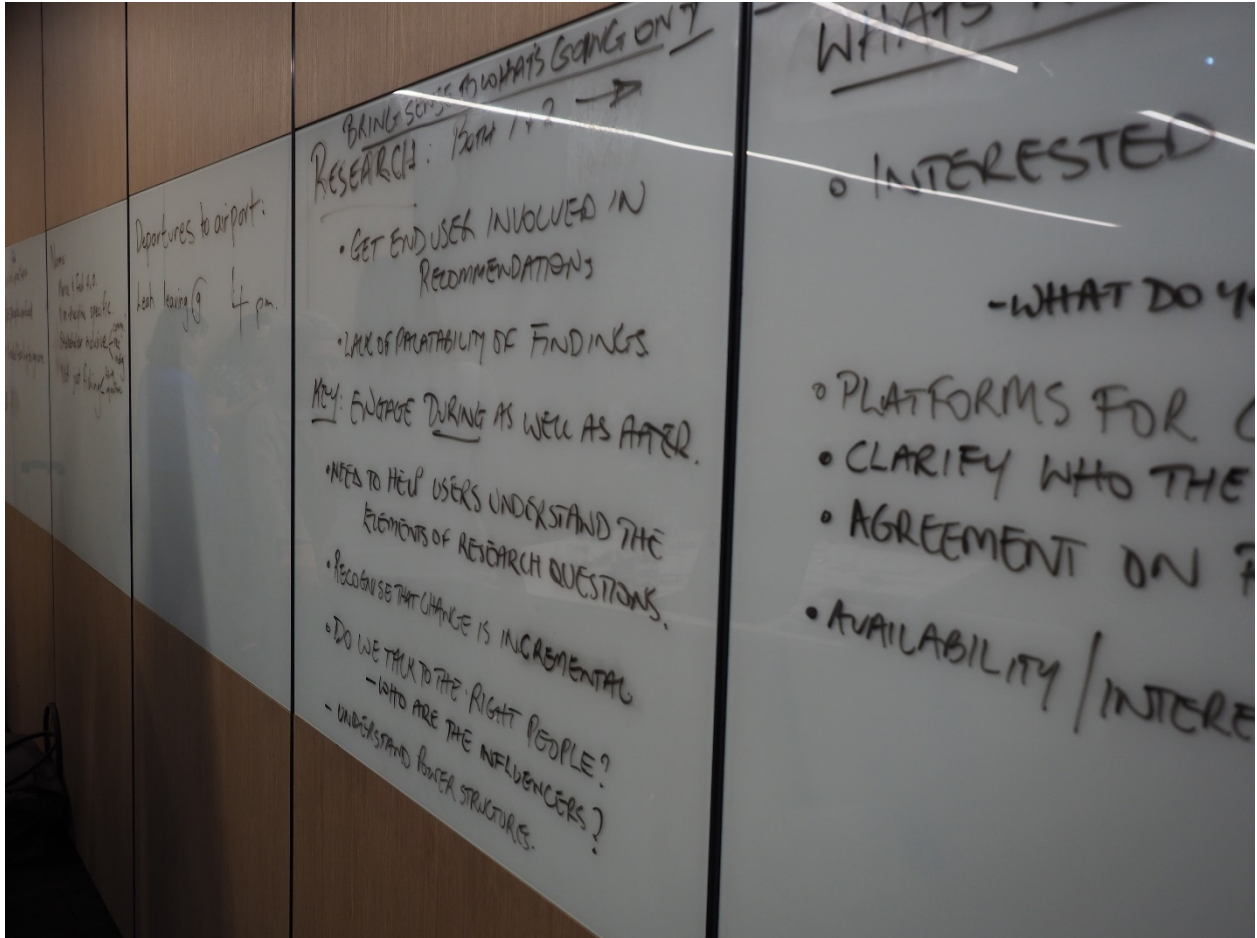 Departures to airport:
Leah leaving @ 4 pm.
BRING SENSE TO WHAT'S GOING ON?
RESEARCH: BOTH 1 + 2 →
• GET END USER INVOLVED IN
RECOMMENDATIONS
• LACK OF PALATABILITY OF FINDINGS
KEY: ENGAGE DURING AS WELL AS AFTER.
• NEED TO HELP USERS UNDERSTAND THE
ELEMENTS OF RESEARCH QUESTIONS.
• RECOGNISE THAT CHANGE IS INCREMENTAL
• DO WE TALK TO THE RIGHT PEOPLE?
- WHO ARE THE INFLUENCERS?
- UNDERSTAND POWER STRUCTURES.
WHATS
• INTERESTED
- WHAT DO
• PLATFORMS FOR
• CLARIFY WHO THE
• AGREEMENT ON
• AVAILABILITY / INTERE